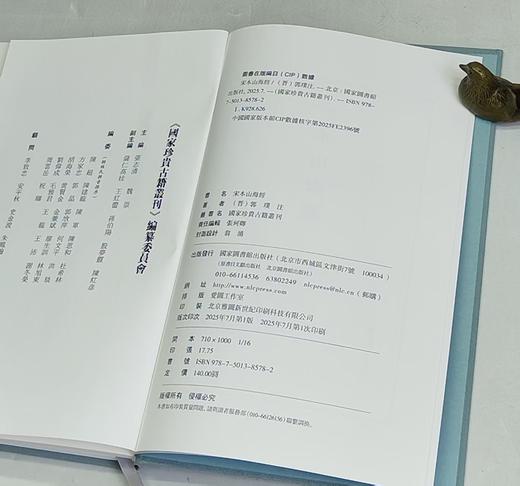 圖書在版編目（CIP）數據
宋本山海經 /（晉）郭璞注. — 北京：國家圖書館
出版社，2025.7. —（國家珍貴古籍叢刊）. — ISBN 978-
7-5013-8578-2
Ⅰ. K928.626
中國國家版本館CIP數據核字第2025FE2396號
書　名　宋本山海經
著　者　（晉）郭　璞　注
叢書名　國家珍貴古籍叢刊
責任編輯　張珂卿
封面設計　翁　涌
出版發行　國家圖書館出版社（北京市西城區文津街7號　100034）
（原書目文獻出版社　北京圖書館出版社）
010-66114536　63802249　nlcpress@nlc.cn（郵購）
網　址　http://www.nlcpress.com
排　版　愛圖工作室
印　裝　北京雅圖新世紀印刷科技有限公司
版次印次　2025年7月第1版　2025年7月第1次印刷
開　本　710×1000　1/16
印　張　17.75
書　號　ISBN 978-7-5013-8578-2
定　價　140.00圓
版權所有　侵權必究
本書如有印裝質量問題，請與讀者服務部（010-66126156）聯繫調換。
《國家珍貴古籍叢刊》編纂委員會
主　編　張志清　魏　崇
副主編　薩仁高娃　王紅蕾
編　委
顧　問　李致忠　安平秋　史金波　朱鳳瀚